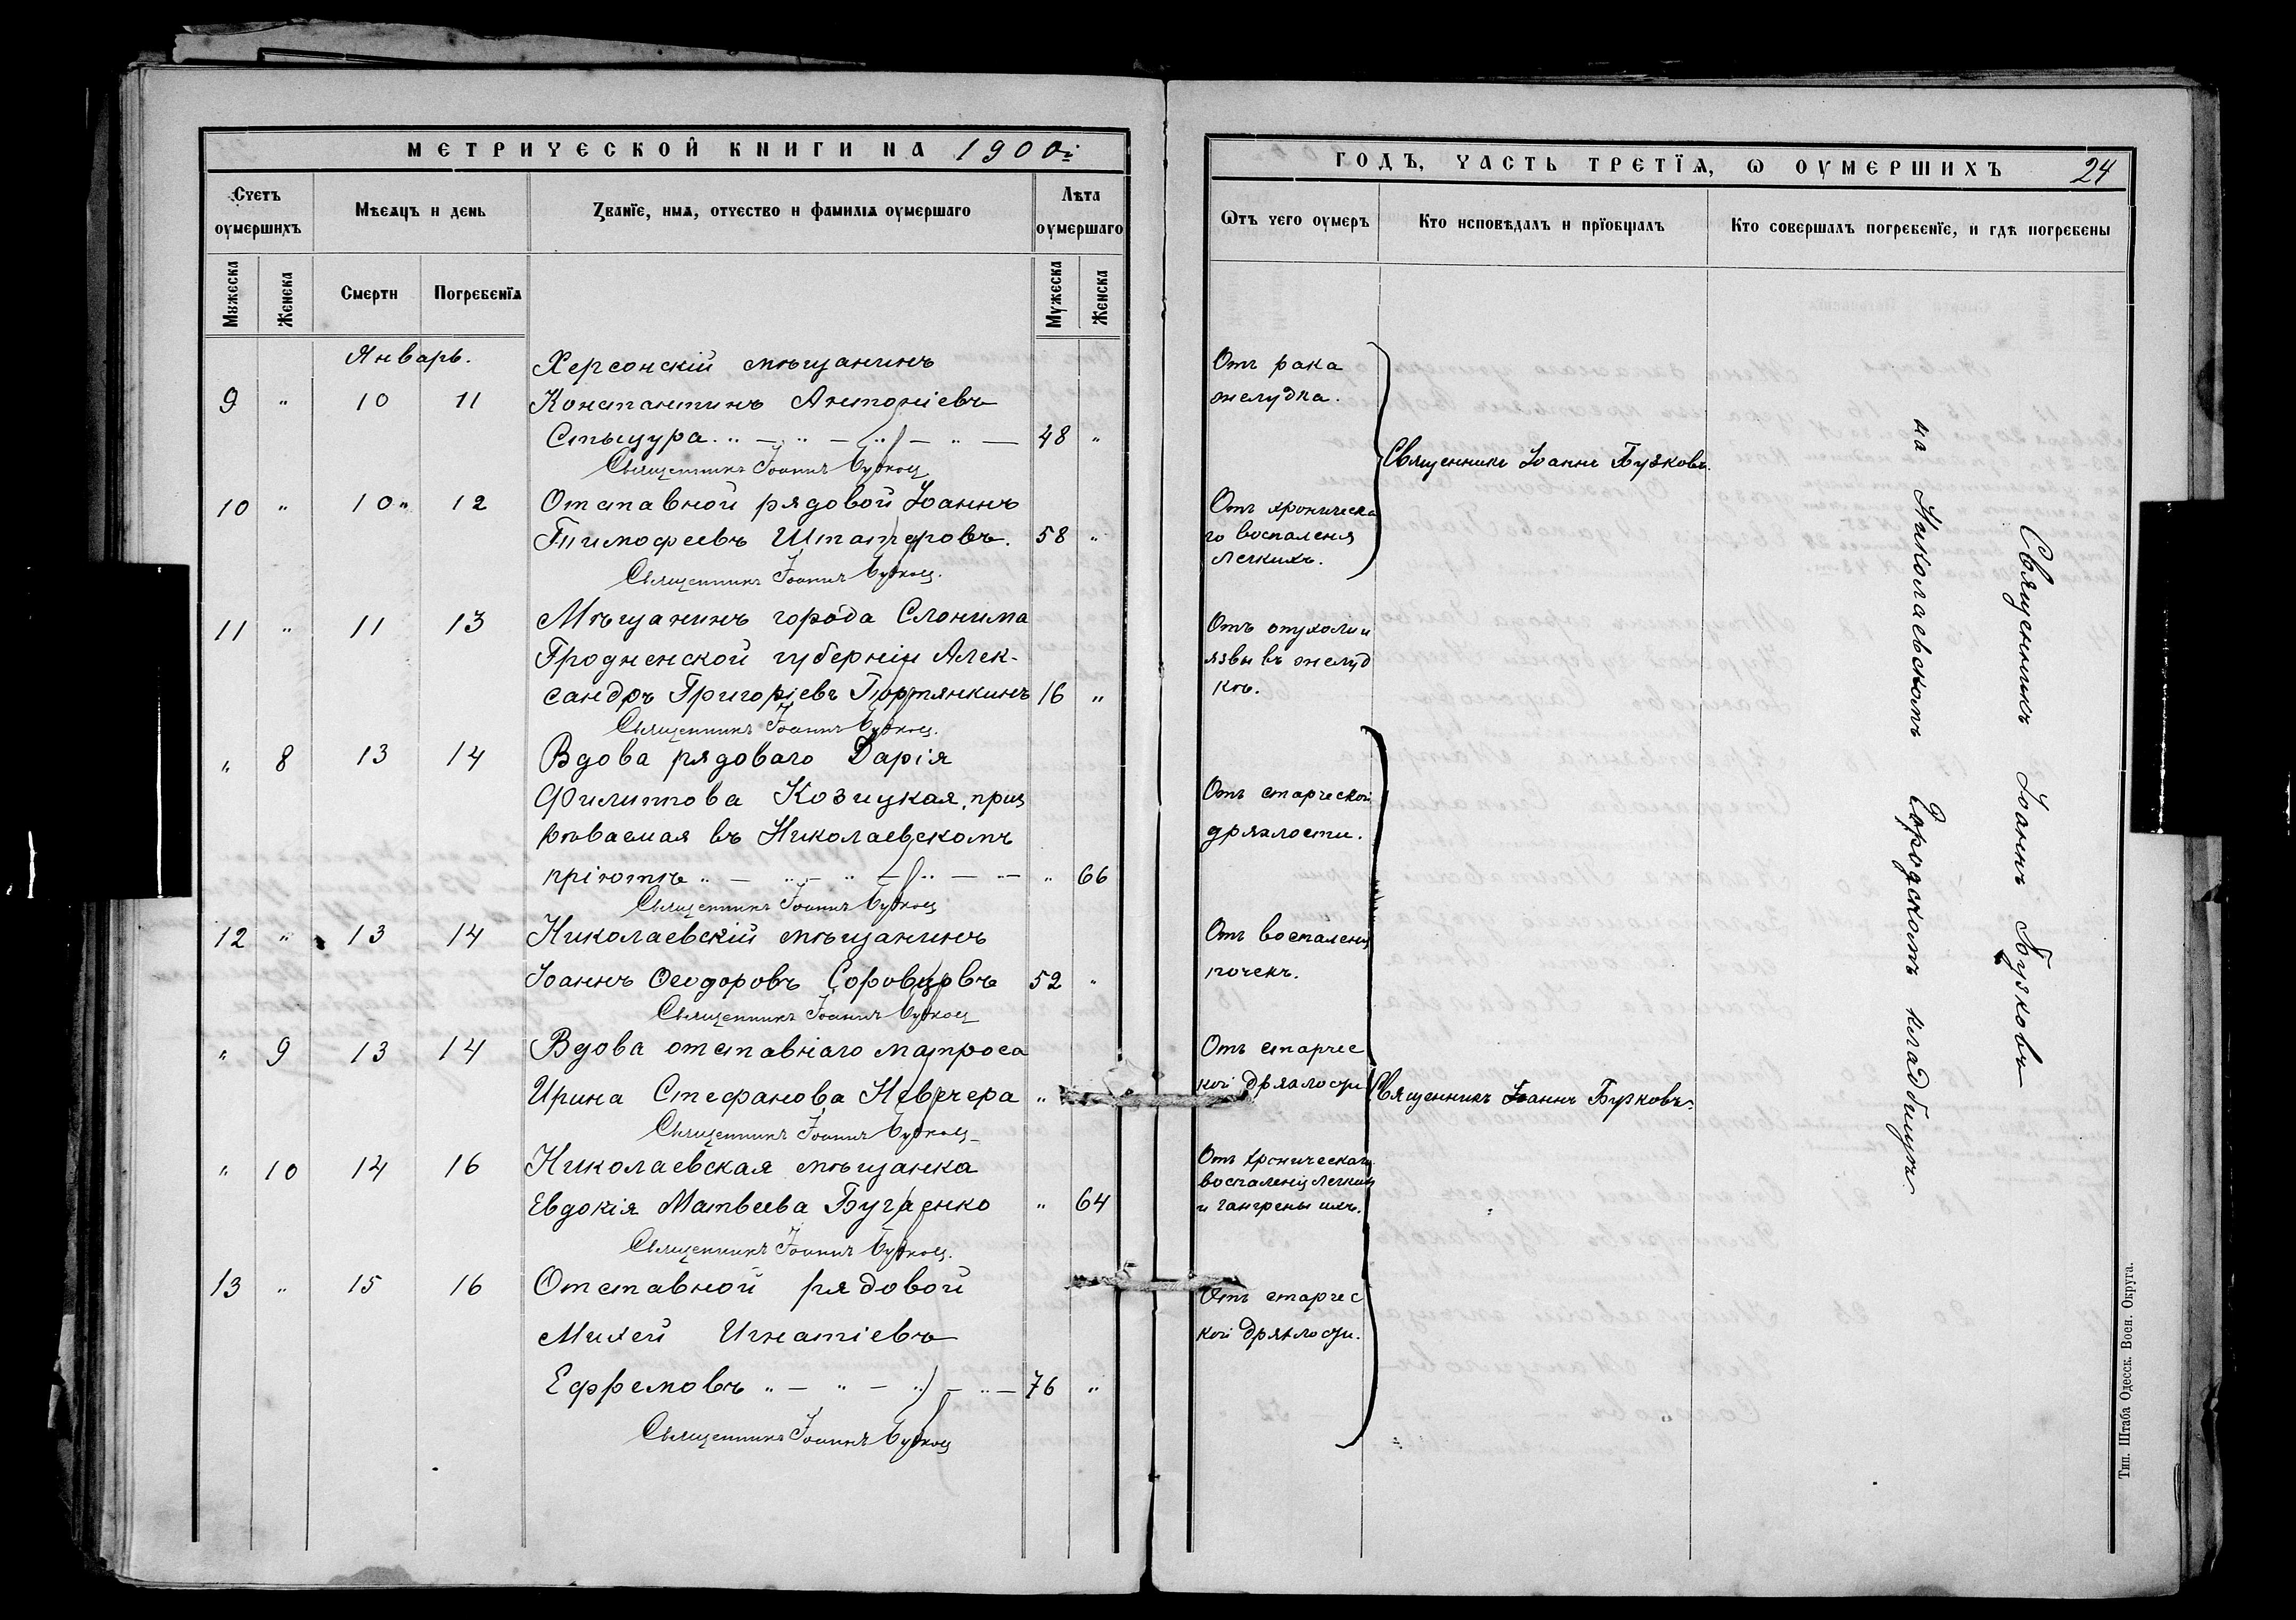 МЕТРИЧЕСКОЙ КНИГИ НА 1900й
Счетъ оумершихъ
Мѣсяцъ и день
Званїе, имя, отчество и фамилїя оумершаго
Лѣта оумершаго
Мужеска
Женска
Смерти
Погребенїя
Мужеска
Женска
Январь. Херсонскій мѣщанинъ
9 " 10 11 Константинъ Антоніевъ
Стыцура. " — " — " — " — 48 "
Священникъ Іоаннъ Бурковъ
10 " 10 " 12 Отставной рядовой Іоаннъ
Тимофеевъ Штатеровъ. 58 "
Священникъ Іоаннъ Бурковъ.
11 " 11 13 Мѣщанинъ города Слонима
Гродненской губерніи Алек-
сандръ Григоріевъ Портянкинъ 16 "
Священникъ Іоаннъ Бурковъ.
" 8 13 14 Вдова рядоваго Дарія
Филиппова Козицкая, приз
рѣваемая въ Николаевскомъ
пріютѣ " — " — " — " — " — " 66
Священникъ Іоаннъ Бурковъ
12 " 13 14 Николаевскій мѣщанинъ
Іоаннъ Ѳеодоровъ 52 "
Священникъ Іоаннъ Бурковъ
" 9 13 14 Вдова отставнаго матроса
Ирина Стефанова Невечера "
Священникъ Іоаннъ Бурковъ
" 10 14 16 Николаевская мѣщанка
Евдокія Матвеева Бугаенко " 64
Священникъ Іоаннъ Бурковъ.
13 " 15 16 Отставной рядовой
Михей Игнатіевъ
Ефремовъ " — " — " — " — 76 "
Священникъ Іоаннъ Бурковъ
ГОДЪ, ЧАСТЬ ТРЕТЇЯ, Ѡ ОУМЕРШИХЪ 24
Ѡтъ чего оумеръ
Кто исповѣдалъ и прїобщалъ
Кто совершалъ погребенїе, и гдѣ погребены
Отъ рака
желудка.
Священникъ Іоаннъ Бурковъ.
Отъ хроническа
го воспаленія
легкихъ.
Отъ опухоли и
язвы въ желуд
кѣ.
Отъ старческой
дряхлости.
Отъ воспаленія
почекъ.
Отъ старчес
кой дряхлости
Священникъ Іоаннъ Бурковъ.
Отъ хроническаго
воспаленія легкихъ
и гангрены ихъ.
Отъ старчес
кой дряхлости.
Священникъ Іоаннъ Бурковъ
на Николаевскомъ Городскомъ кладбищѣ
Тип. Штаба Одесск. Воен. Округа.